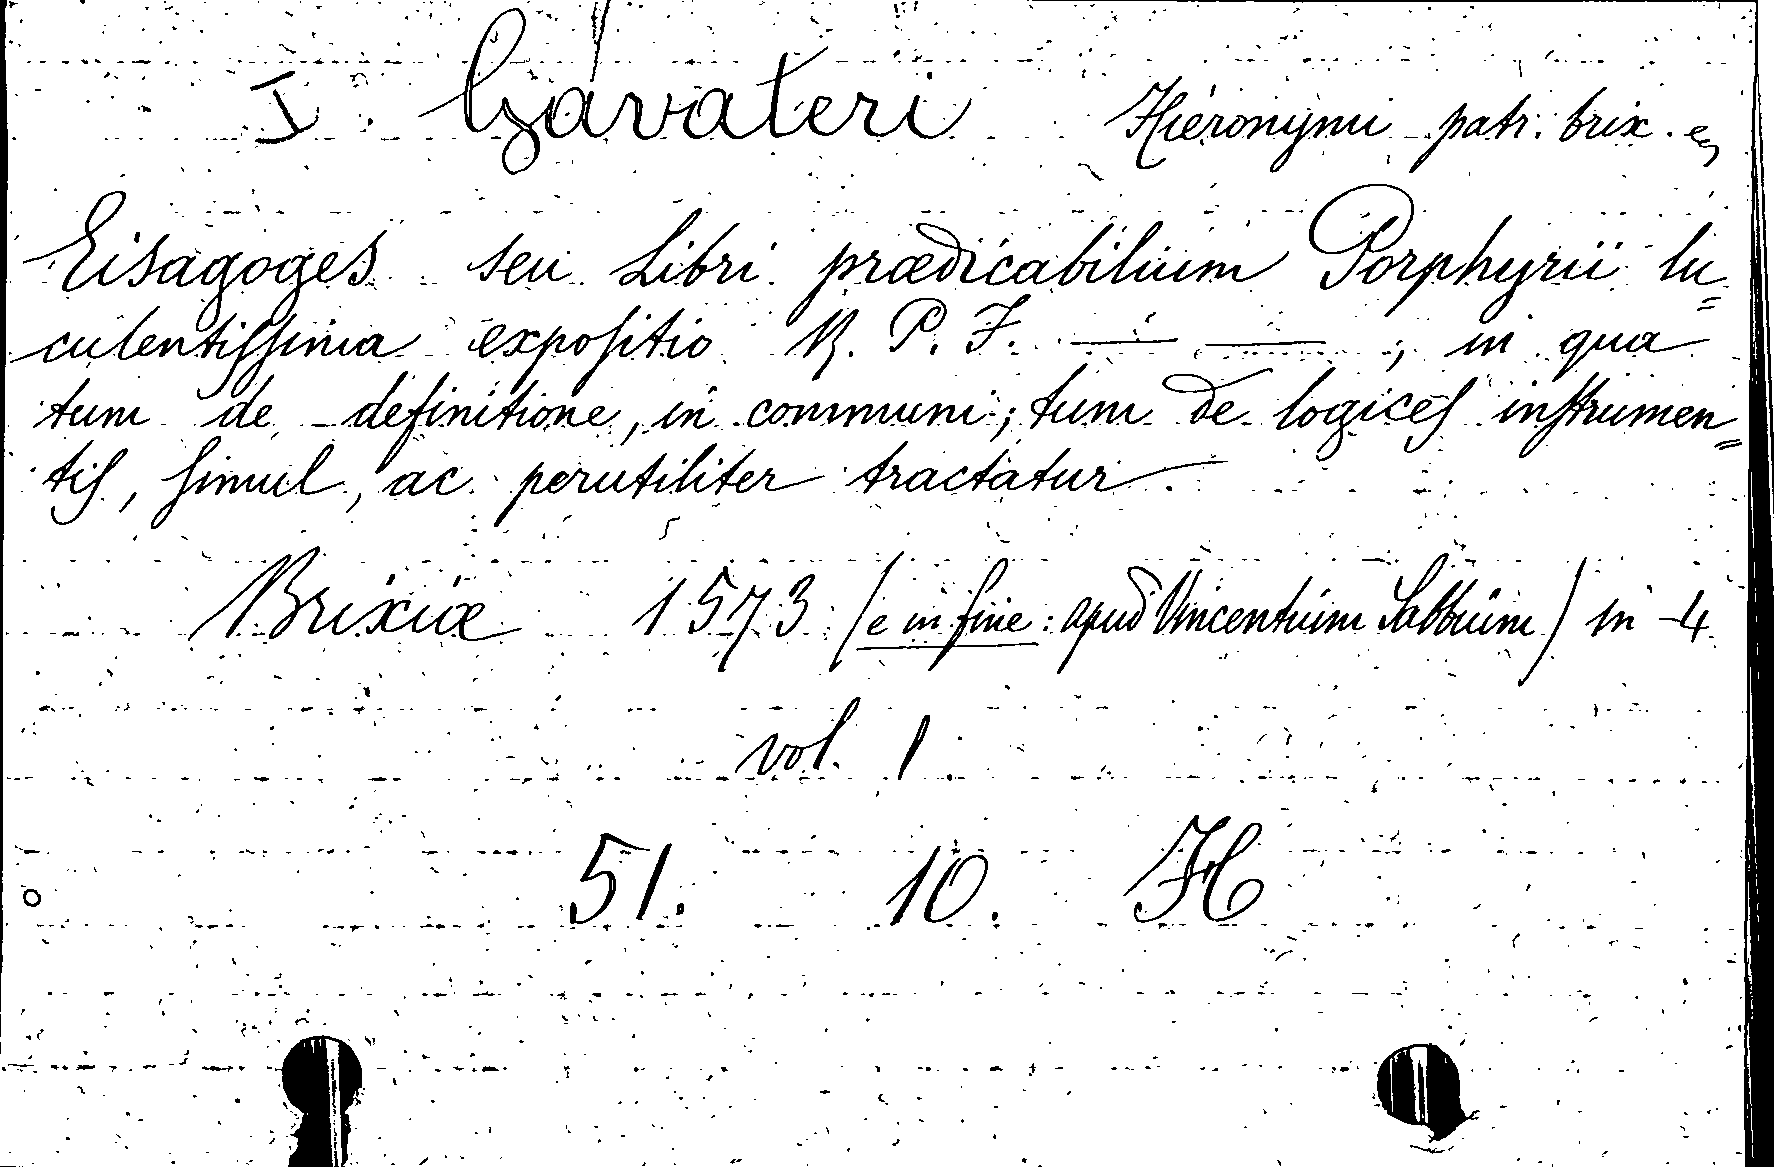 I. Gavateri Hieronymi patr. brix. e
Eisagoges seu Libri prædicabilium Porphyrii lu=
culentiſſima expoſitio R. P. F. — — , in qua
tum de definitione, in communi; tum de logiceſ inſtrumen=
tiſ, ſimul, ac perutiliter tractatur.
Brixiæ 1573 (e in fine: apud Vincentium Sabbium) in 4
vol. 1
51. 10. H